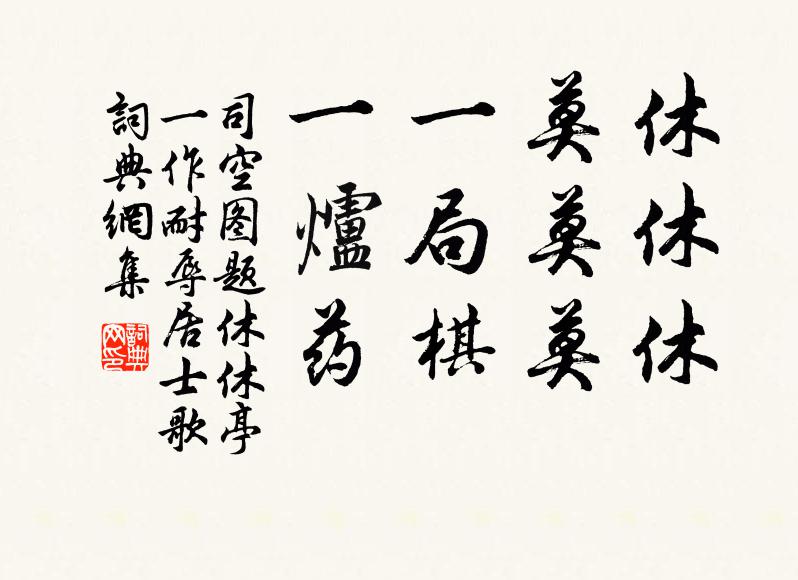 休休休
莫莫莫
一局棋
一爐药
司空图题休休亭
一作耐辱居士歌
詞典網集
詞典网印